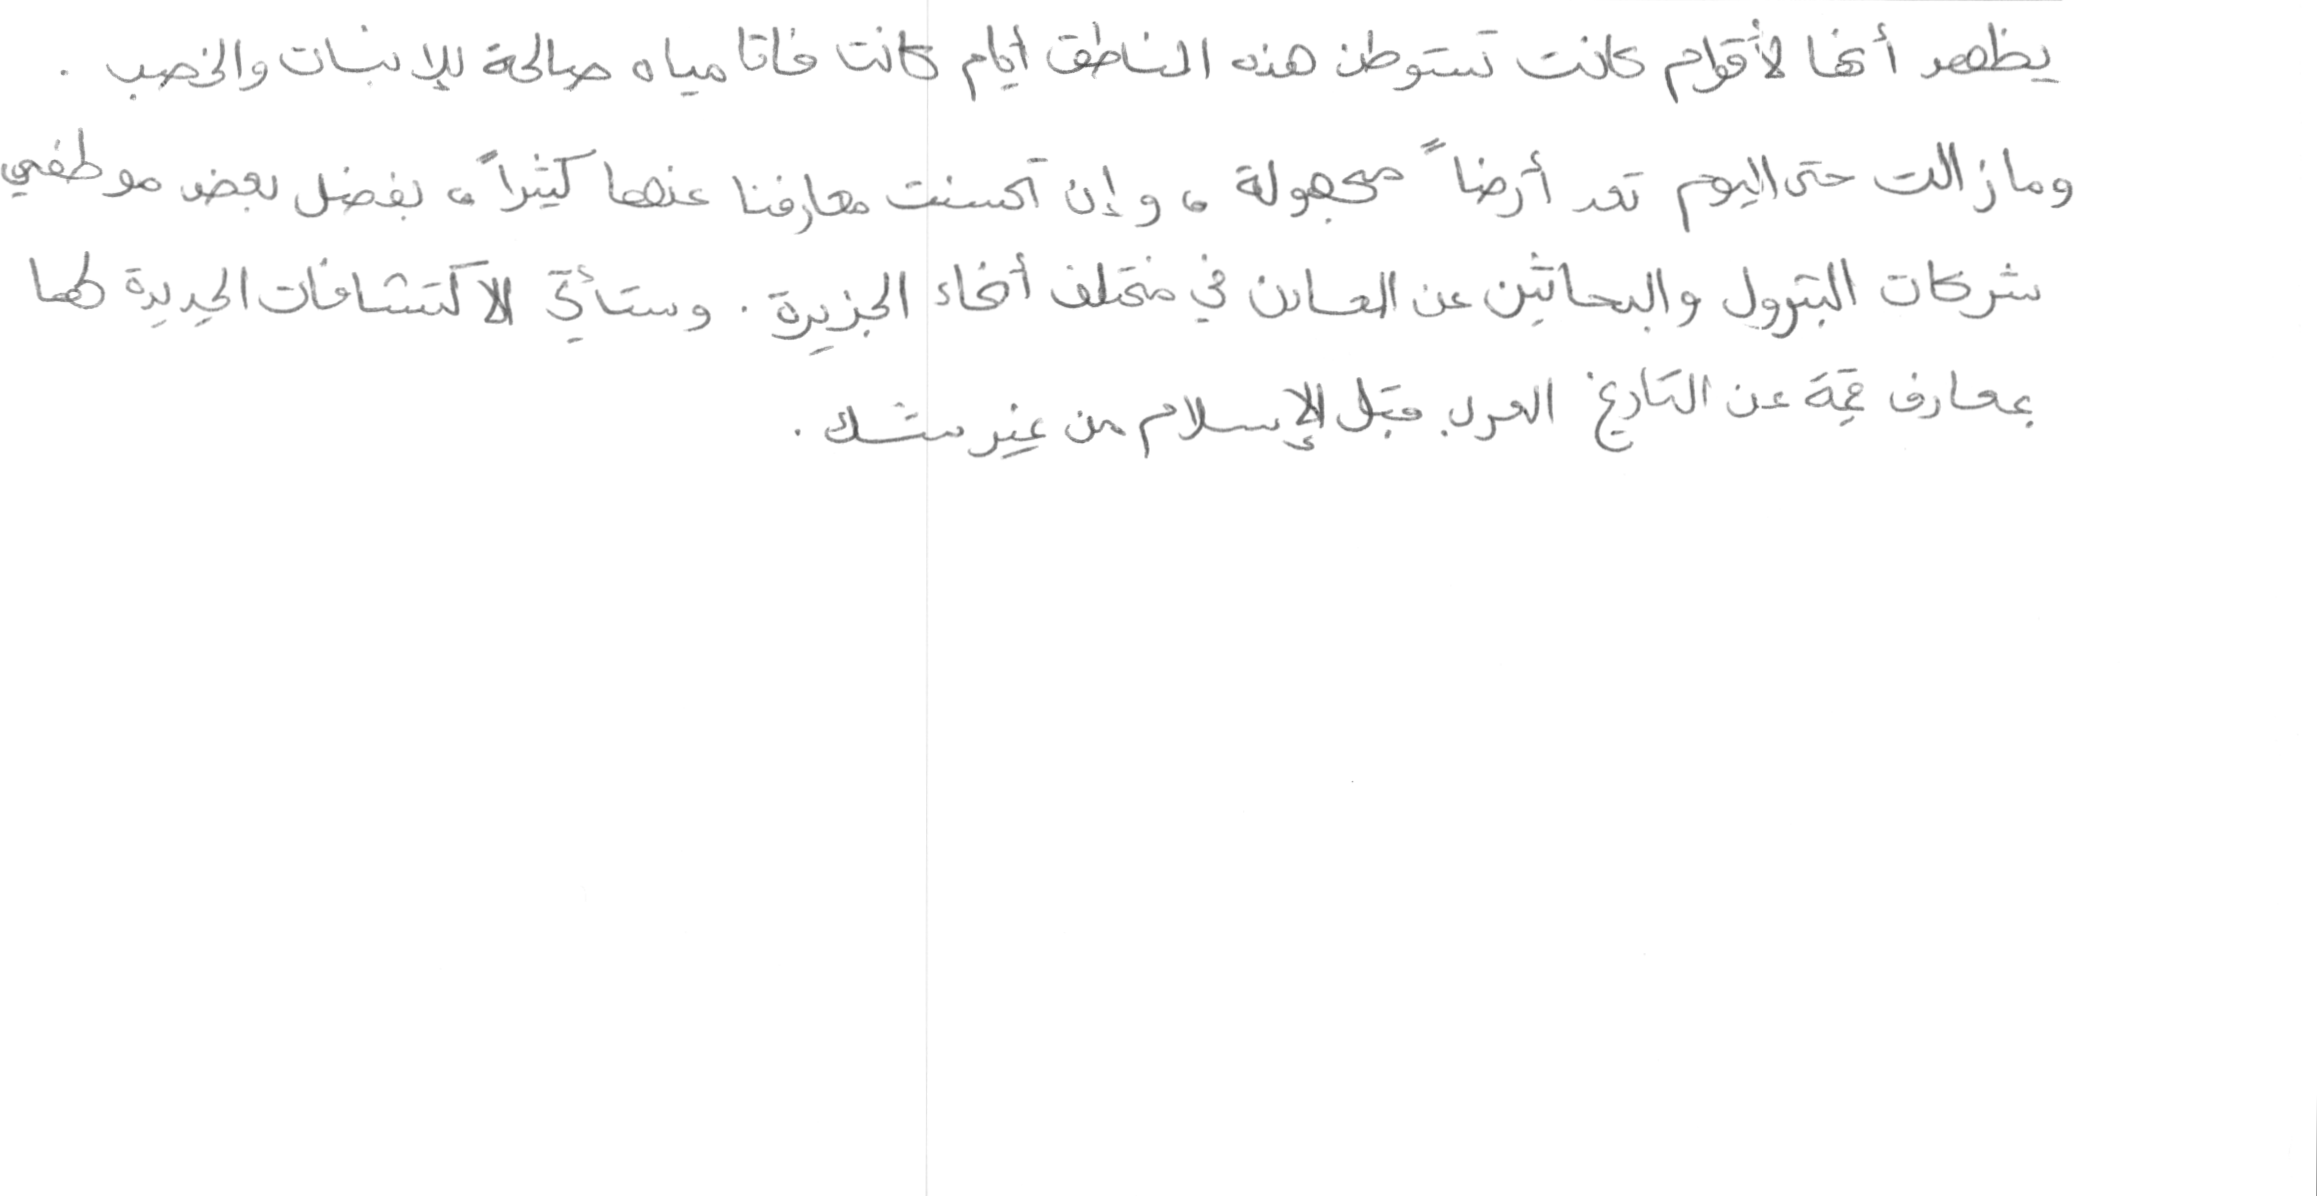 يظهر أنها لأقوام كانت تستوطن هذه المناطق أيام كانت فاتا مياه صالحة للإنبات والخصب .
وما زالت حتى اليوم تعد أرضاً مجهولة ، وإن تحسنت معارفنا عنها كثيراً ، بفضل بعض موظفي
شركات البترول والبحاثين عن المعادن في مختلف أنحاء الجزيرة . وستأتي الاكتشافات الجديدة كما
بمعارف قيمة عن التاريخ العرب قبل الإسلام من غير شك .